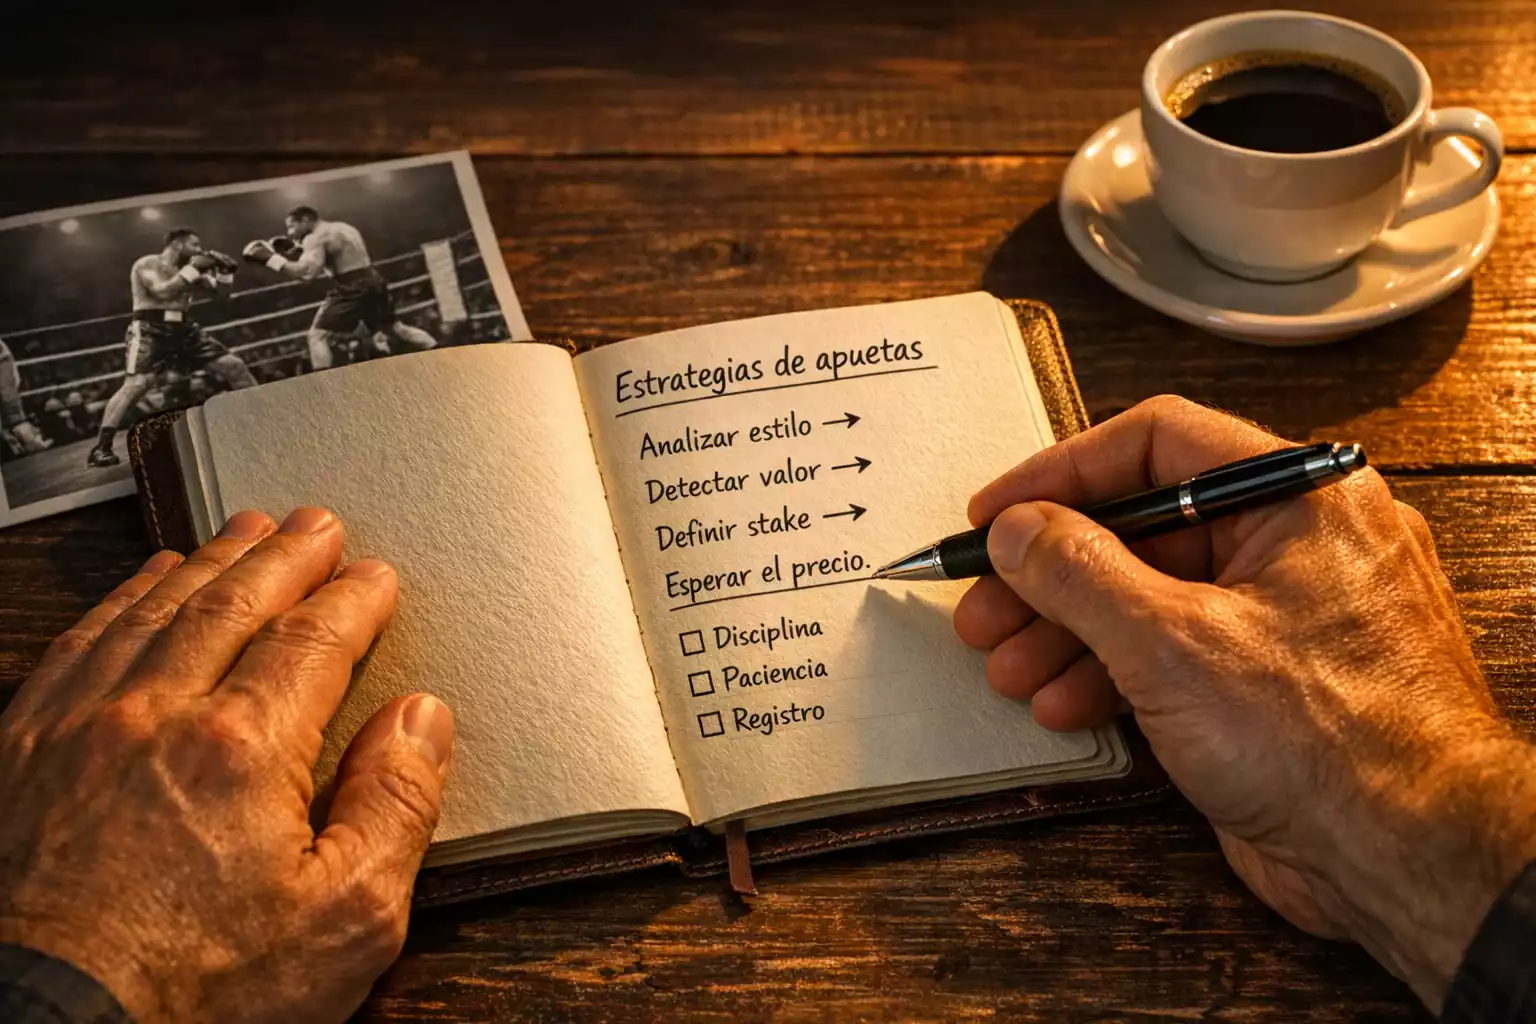 Estrategias de apuetas
Analizar estilo →
Detectar valor →
Definir stake →
Esperar el precio.
☐ Disciplina
☐ Paciencia
☐ Registro